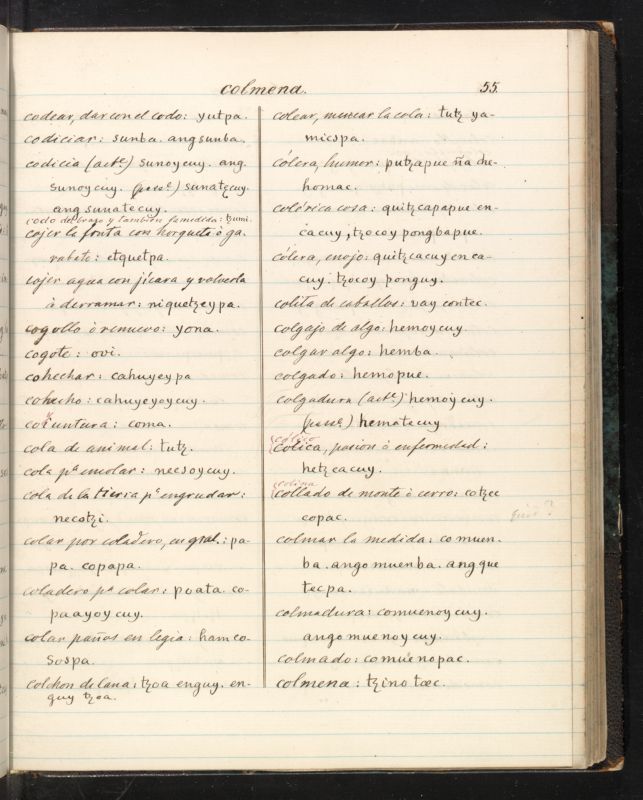 colmena.
55.
codear, dar con el codo: yutpa.
codiciar: sunba. angsunba.
codicia (act.ͤ) sunoycuy. ang.
sunoycuy. (pass.ͤ) sunatꜩcuy.
angsunatecuy.
codo del brazo y tambien la medida: ꜩumi.
cojer la fruta con horqueta ò ga.
rabato: etquetpa.
cojer agua con jícara y volverla
à derramar: niquetꜩeypa.
cogollo ò renuevo: yona.
cogote: ovi.
cohechar: cahuyeypa
cohecho: cahuyeyoycuy.
coiuntura: coma.
cola de animal: tutꜩ.
cola p.ª encolar: necsoycuy.
cola de la tierra p.ª engrudar:
necotꜩi.
colar por coladero, en gral.: pa-
pa. copapa.
coladero p.ª colar: poata. co-
paayoycuy.
colar paños en legia: hamco-
sospa.
colchon de lana: ꜩoa enguy. en-
guy ꜩoa.
colear, menear la cola: tutꜩ ya-
micspa.
cólera, humor: putꜩapue ña che-
homac.
colérica cosa: quitꜩcapapue en-
cacuy, ꜩocoy pongbapue.
cólera, enojo: quitꜩcacuy en ca-
cuy. ꜩocoy ponguy.
colita de caballos: vay contec.
colgajo de algo: hemoycuy.
colgar algo: hemba.
colgado: hemopue.
colgadura (act.ͤ) hemoycuy.
(pass.ͤ) hematecuy
cólico
colica, pasion ò enfermedad:
hetꜩcacuy.
colina
collado de monte ò cerro: cotꜩec
copac.
colmar la medida: comuen-
ba. angomuenba. angque
tacpa.
colmadura: comuenoycuy.
angomuenoycuy.
colmado: comuenopac.
colmena: ꜩino tæc.